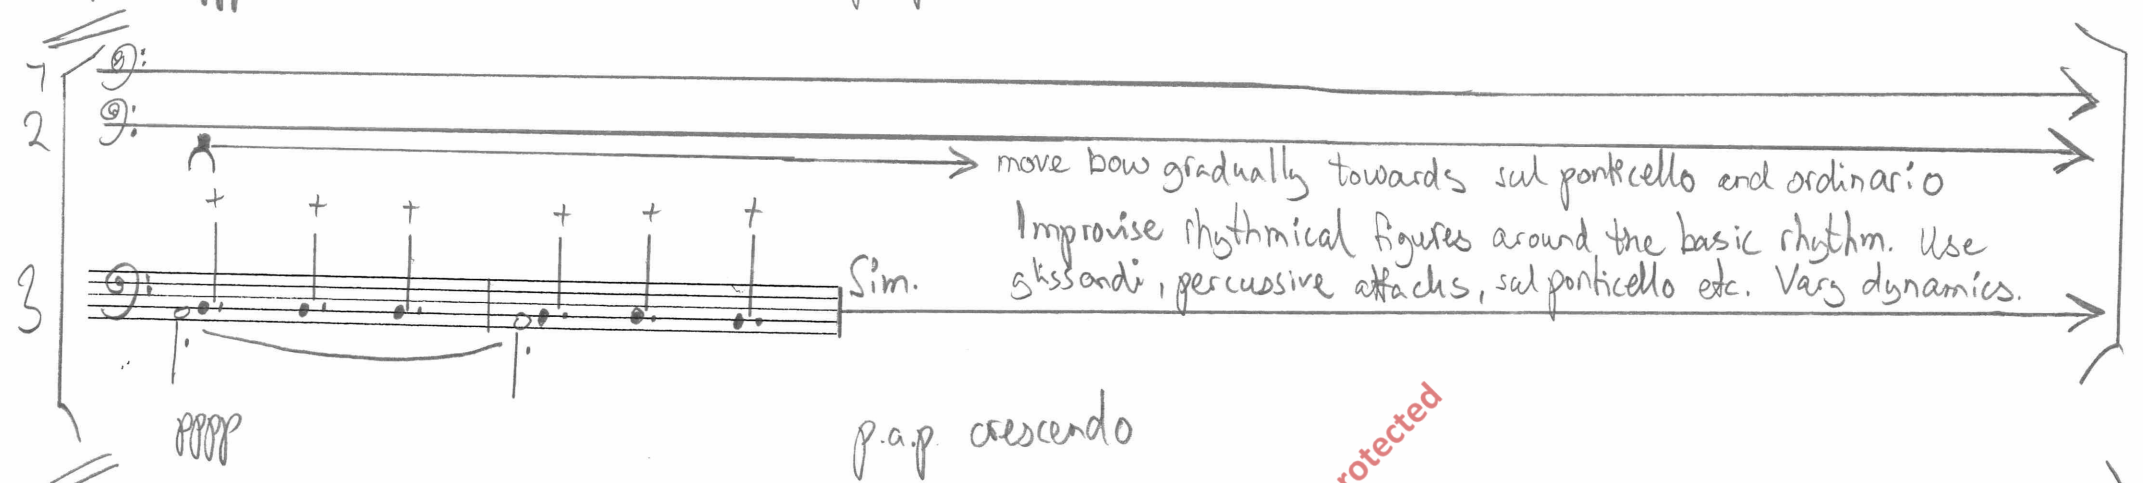 1
2
move bow gradually towards sul ponticello and ordinario
Improvise rhythmical figures around the basic rhythm. Use
3
Sim.
glissandi, percussive attacks, sul ponticello etc. Vary dynamics.
pppp
p.a.p. crescendo
rotected